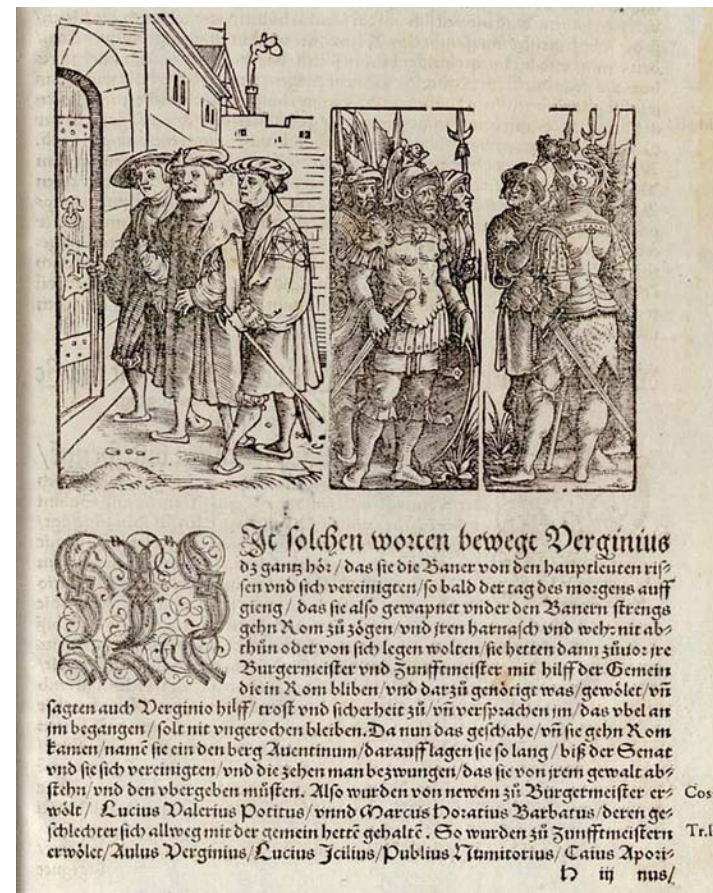 MIt solchen worten bewegt Verginius
dz gantz hör / das sie die Baner von den hauptleuten ris⸗
sen vnd sich vereinigten / so bald der tag des morgens auff
gieng / das sie also gewapnet vnder den Banern strengs
gehn Rom zů zögen / vnd jren harnasch vnd wehr nit ab⸗
thůn oder von sich legen wolten / sie hetten dann zůuor jre
Burgermeister vnd Zunfftmeister mit hilff der Gemein
die in Rom bliben / vnd darzů genötigt was / gewölet / vñ
sagten auch Verginio hilff / trost vnd sicherheit zů / vñ versprachen jm / das vbel an
jm begangen / solt nit vngerochen bleiben. Da nun das geschahe / vñ sie gehn Rom
kamen / namẽ sie ein den berg Auentinum / darauff lagen sie so lang / biß der Senat
vnd sie sich vereinigten / vnd die zehen man bezwungen / das sie von jrem gewalt ab⸗
stehn / vnd den vbergeben můsten. Also wurden von newem zů Burgermeister er⸗
wölt / Lucius Valerius Potitus / vnnd Marcus Horatius Barbatus / deren ge⸗
schlechter sich allweg mit der gemein hettẽ gehaltẽ. So wurden zů Zunfftmeistern
erwölet / Aulus Verginius / Lucius Jcilius / Publius Numitorius / Caius Apori⸗
h iij nus /
Cos
Tr.